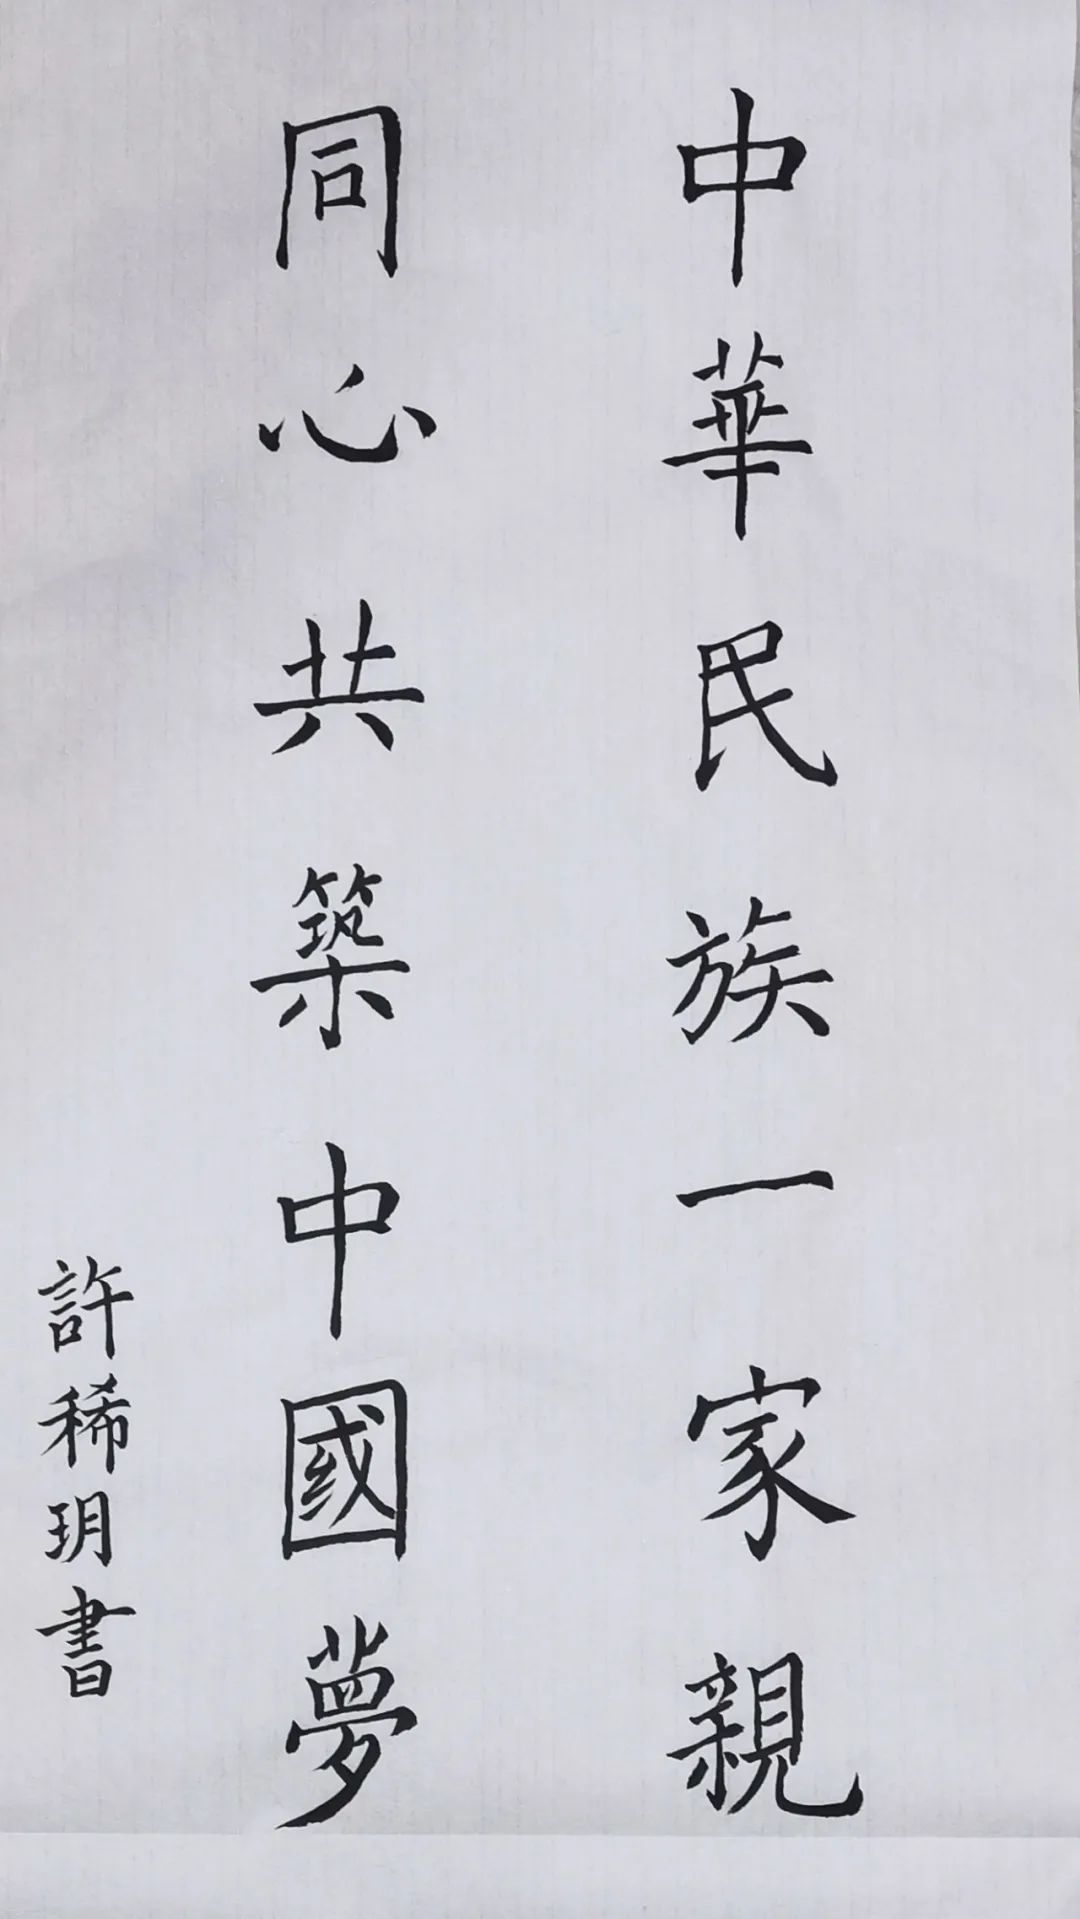 中華民族一家親
同心共築中國夢
許稀玥書